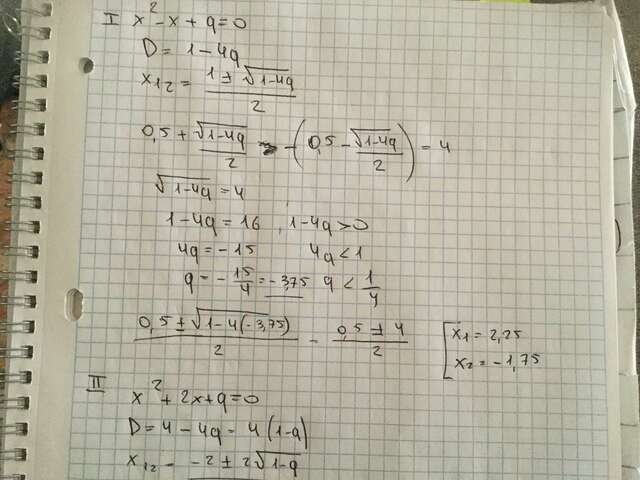 I x² - x + q = 0
D = 1 - 4q
x₁₂ = (1 ± √(1-4q))/2
0,5 + √(1-4q)/2 - (0,5 - √(1-4q)/2) = 4
√(1-4q) = 4
1 - 4q = 16 , 1 - 4q > 0
4q = - 15 4q < 1
q = - 15/4 = - 3,75 q < 1/4
(0,5 ± √(1 - 4(-3,75)))/2 = (0,5 ± 4)/2 [ x₁ = 2,25
x₂ = - 1,75
II
x² + 2x + q = 0
D = 4 - 4q = 4(1-q)
x₁₂ = -2 ± 2√(1-q)